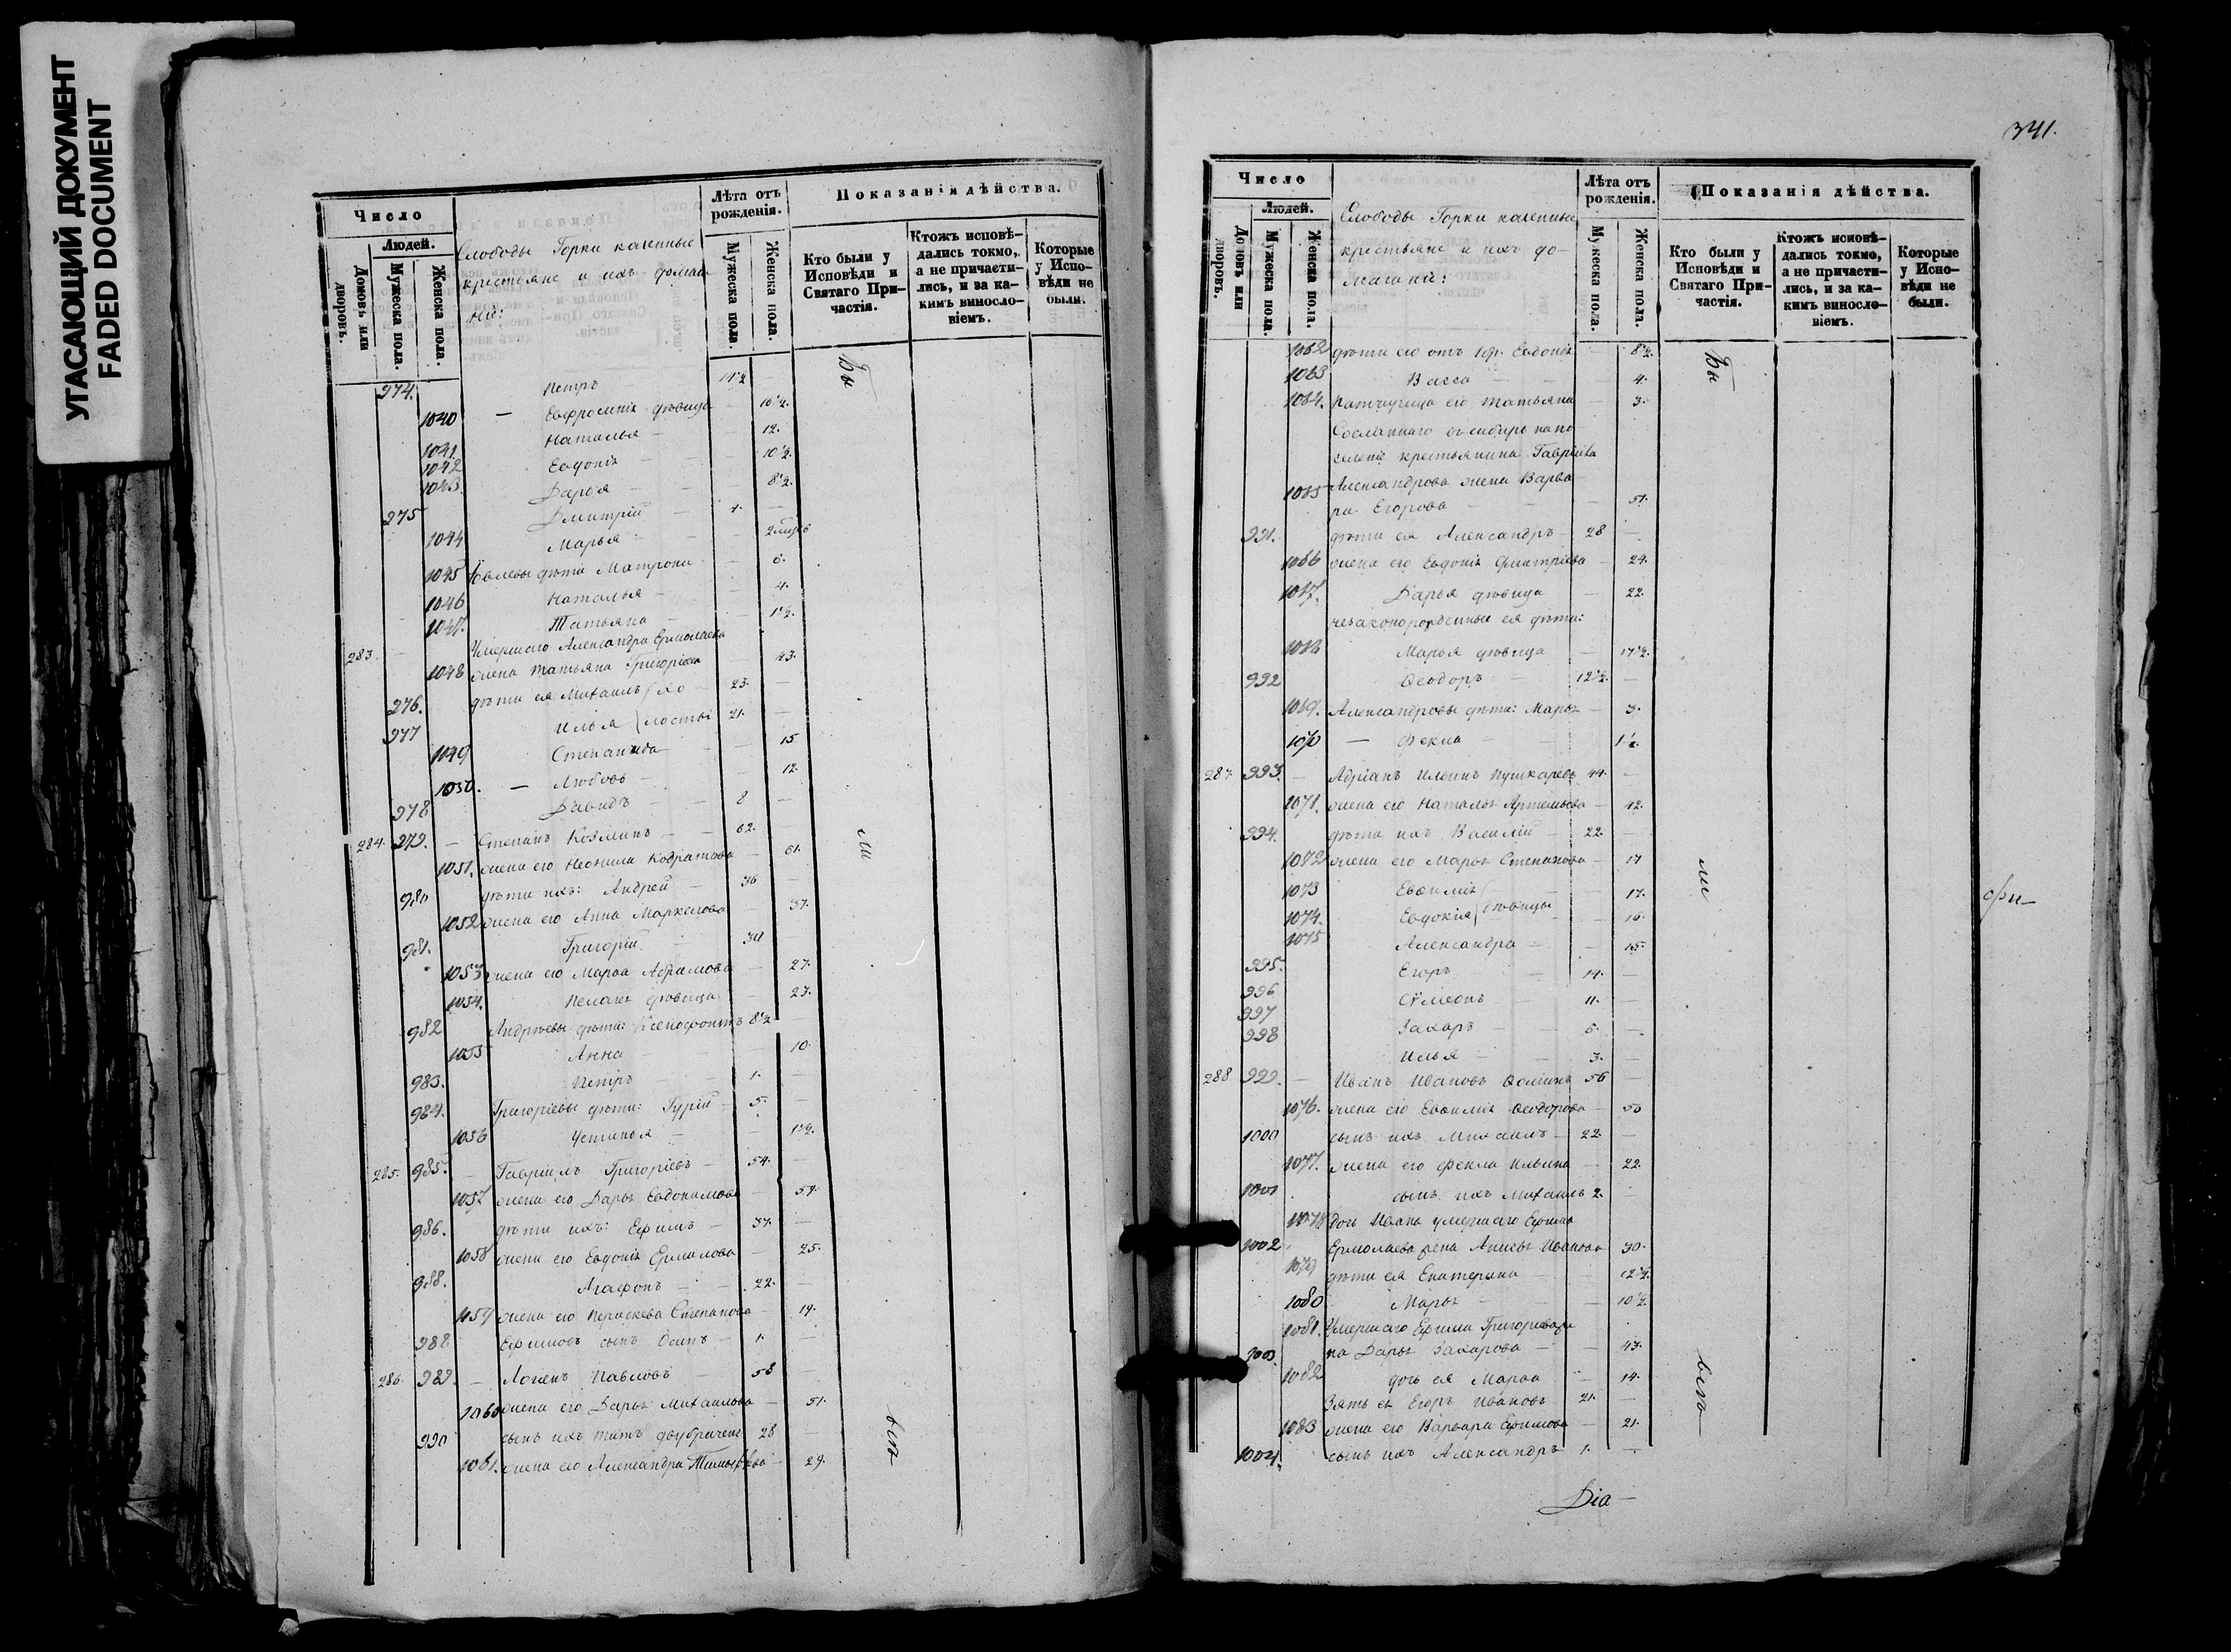 УГАСАЮЩИЙ ДОКУМЕНТ
FADED DOCUMENT
Число
Людей.
Домовъ или дворовъ.
Мужеска пола.
Женска пола.
Слободы Горки казенные
крестьяне и ихъ домаш
ніи:
Лѣта отъ рожденія.
Мужеска пола.
Женска пола.
Показанія дѣйства.
Кто были у Исповѣди и Святаго Причастія.
Ктожъ исповѣдались токмо, а не причастились, и за какимъ винословіемъ.
Которые у Исповѣди не были.
974. Петръ 14½
1040 — Евфросинія дѣвица — 16½.
1041. Наталья — 12.
1042 Евдокія — 10½.
1043. Дарья — 8½.
975 Дмитрій — 4. —
1044 Марья — 2
1045 дѣти Матрона — 6.
1046 Наталья — 4.
1047. Татьяна — 1½.
283. — Умершаго Александра Ермолаева
1048 жена Татьяна Григорьева — 43.
976. дѣти ея Михаилъ хо 23. —
977 Илья лостые 21. —
1049 Степанида — 15
1050. — Любовь — 12.
978 Давидъ — 8 —
284. 979. — Степанъ Козминъ — 62. —
1051. жена его Неонила Кодратова — 61.
980 дѣти ихъ: Андрей — 36 —
1052 жена его Анна Маркелова — 37.
981. Григорій 30 —
1053 жена его Марѳа Абрамова — 27.
1054. Пелагея дѣвица — 23.
982 Андреевы дѣти: Ксенофонтъ 8½ —
1055 Анна — 10.
983. Петръ — 1. —
984. Григорьевы дѣти: Гурій — 5. —
1056 Устинья — 1½.
285. 985. — Гавріилъ Григорьевъ — 54. —
1057 жена его Дарья Евдокимова — 54.
986. дѣти ихъ: Ефимъ — 34. —
1058 жена его Евдокія Ермилова — 25.
988. Агафонъ — 22. —
1059 жена его Параскева Степанова — 19.
988 Ефимовъ сынъ Осипъ — 1. —
286. 989. — Логенъ Павловъ 58
1060 жена его Дарья Михаилова — 51.
990 сынъ ихъ Титъ двубрачен. 28
1061. жена его Александра Тимоѳеева — 29.
Бы
ли
всѣ
341.
Число
Людей.
Домовъ или дворовъ.
Мужеска пола.
Женска пола.
Слободы Горки казенные
крестьяне и ихъ до-
машніе:
Лѣта отъ рожденія.
Мужеска пола.
Женска пола.
Показанія дѣйства.
Кто были у Исповѣди и Святаго Причастія.
Ктожъ исповѣдались токмо, а не причастились, и за какимъ винословіемъ.
Которые у Исповѣди не были.
1062 дѣти его отъ 1 бр. Евдокія — 8½.
1063 Васса — 4.
1064. Падчерица его Татьяна — 3.
Сосланнаго въ Сибирь на по
селеніе крестьянина Гавріила
1065 Александрова жена Варва
ра Егорова — 51.
991. дѣти ея Александръ — 28 —
1066 жена его Евдокія Дмитріева — 24.
1067. Дарья дѣвица — 22
незаконорожденные ея дѣти:
1068 Марья дѣвица — 17½.
992 Ѳеодоръ — 12½. —
1069. Александровы дѣти: Марья — 3.
1070 — Фекла — 1½.
287. 993. — Адріанъ Ильинъ Пушкаревъ 44. —
1071. жена его Наталья Артемьева — 42.
994. дѣти ихъ Василій — 22 —
1072 жена его Марья Степанова — 17
1073 Евфимія — 17.
1074. Евдокія дѣвицы — 16.
1075 Александра — 15.
995. Егоръ — 14. —
996 Симеонъ — 11. —
997 Захаръ — 6. —
998 Илья — 3. —
288 999. — Иванъ Ивановъ Ѳоминъ 56 —
1076. жена его Евфимія Ѳеодорова — 50
1000 сынъ ихъ Михаилъ — 22. —
1077. жена его Фекла Ильина — 22
1001 сынъ ихъ Михаилъ 2. —
1078 дочь Ивана умершаго Ефима
1002 Ермолаева жена Анисья Иванова 30.
1079 дѣти ея Екатерина — 12½.
1080 Марья — 10½.
1081. Умершаго Ефима Григорьева же
1003. на Дарья Захарова — 43.
1082 дочь ея Марѳа — 14.
Зять ея Егоръ Ивановъ 21. —
1083 жена его Варвара Ефимова — 21.
1004. сынъ ихъ Александръ 1. —
Бы
ли
всѣ
Діа—